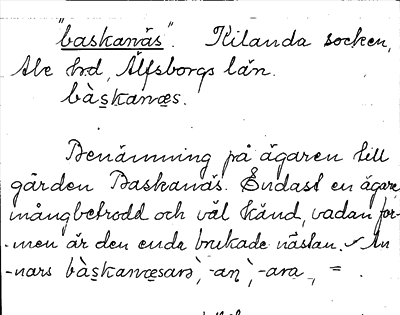 "baskanäs". Kilanda socken,
Ale hd, Älfsborgs län.
bàskanæs.
Benämning på ägaren till
gården Baskanäs. Endast en ägare
mångbetrodd och väl känd, vadan for-
-men är den enda brukade nästan. An
-nars bàskanæsarə, -aṇ, -ara, = .